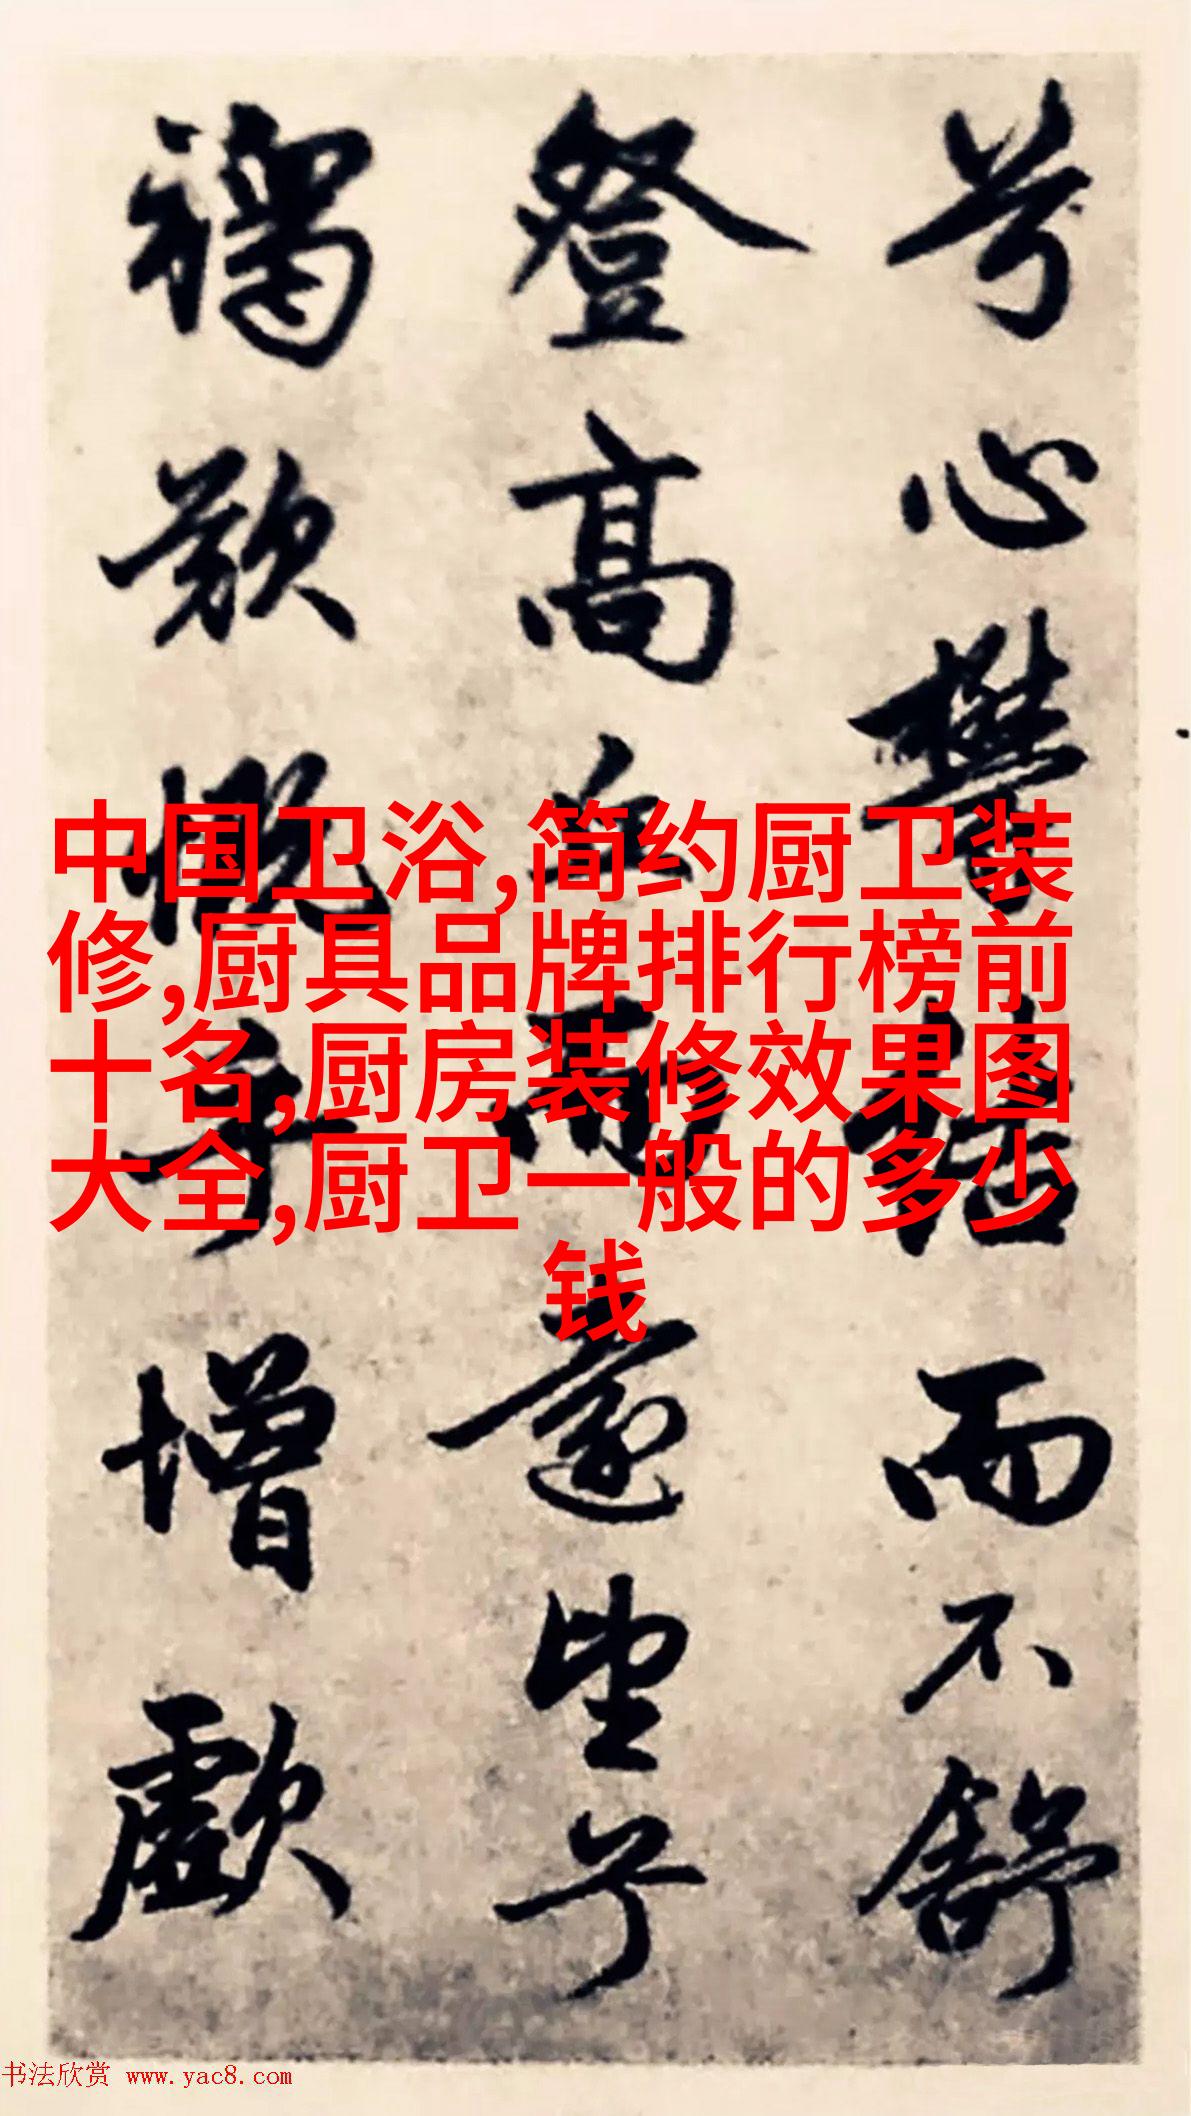 兮心鬱結而不舒
登高丘而遠望兮
慨乎增歔
中国卫浴,简约厨卫装
修,厨具品牌排行榜前
十名,厨房装修效果图
大全,厨卫一般的多少
钱
书法欣赏 www.yac8.com